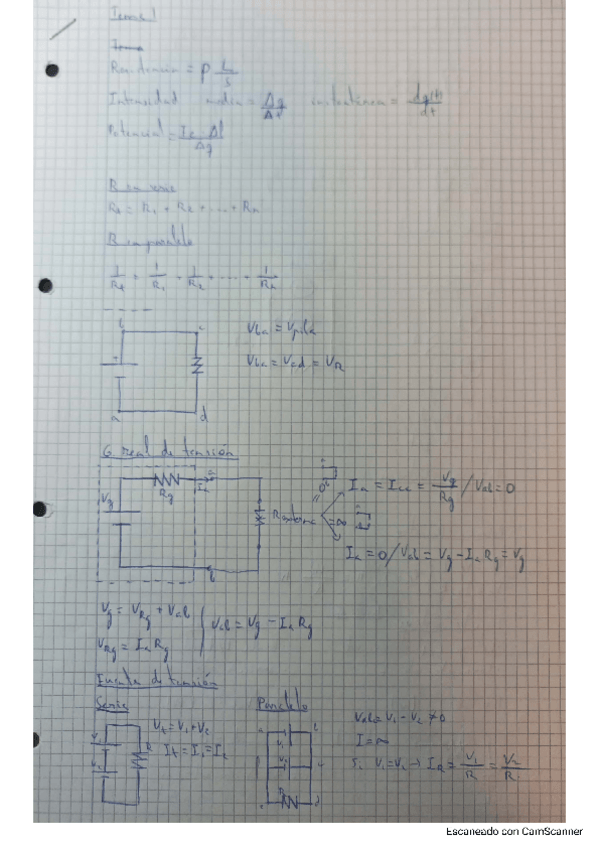 Tema 1
Tema
Resistencia = ρ L/S
Intensidad media = Δq/Δt instantánea = dq(t)/dt
Potencial =
Δq
R en serie
Rt = R1 + R2 + ... + Rn
R en paralelo
1/Rt = 1/R1 + 1/R2 + ... + 1/Rn
b c
Vba = Vpila
Vba = Vcd = VR
a d
G. real de tensión
Vg Rg Ia a
Rexterna
=0
=∞
Ia = Icc = Vg/Rg / Vab = 0
Ia = 0 / Vab = Vg - Ia Rg = Vg
b
Vg = VRg + Vab
VRg = Ia Rg
Vab = Vg - Ia Rg
Fuente de tensión
Serie
V1
V2
R
Vt = V1 + V2
It = I1 = I2
Paralelo
V1
V2
R
Vab = V1 - V2 ≠ 0
I = ∞
Si V1 = V2 → IR = V1/R = V2/R
Escaneado con CamScanner